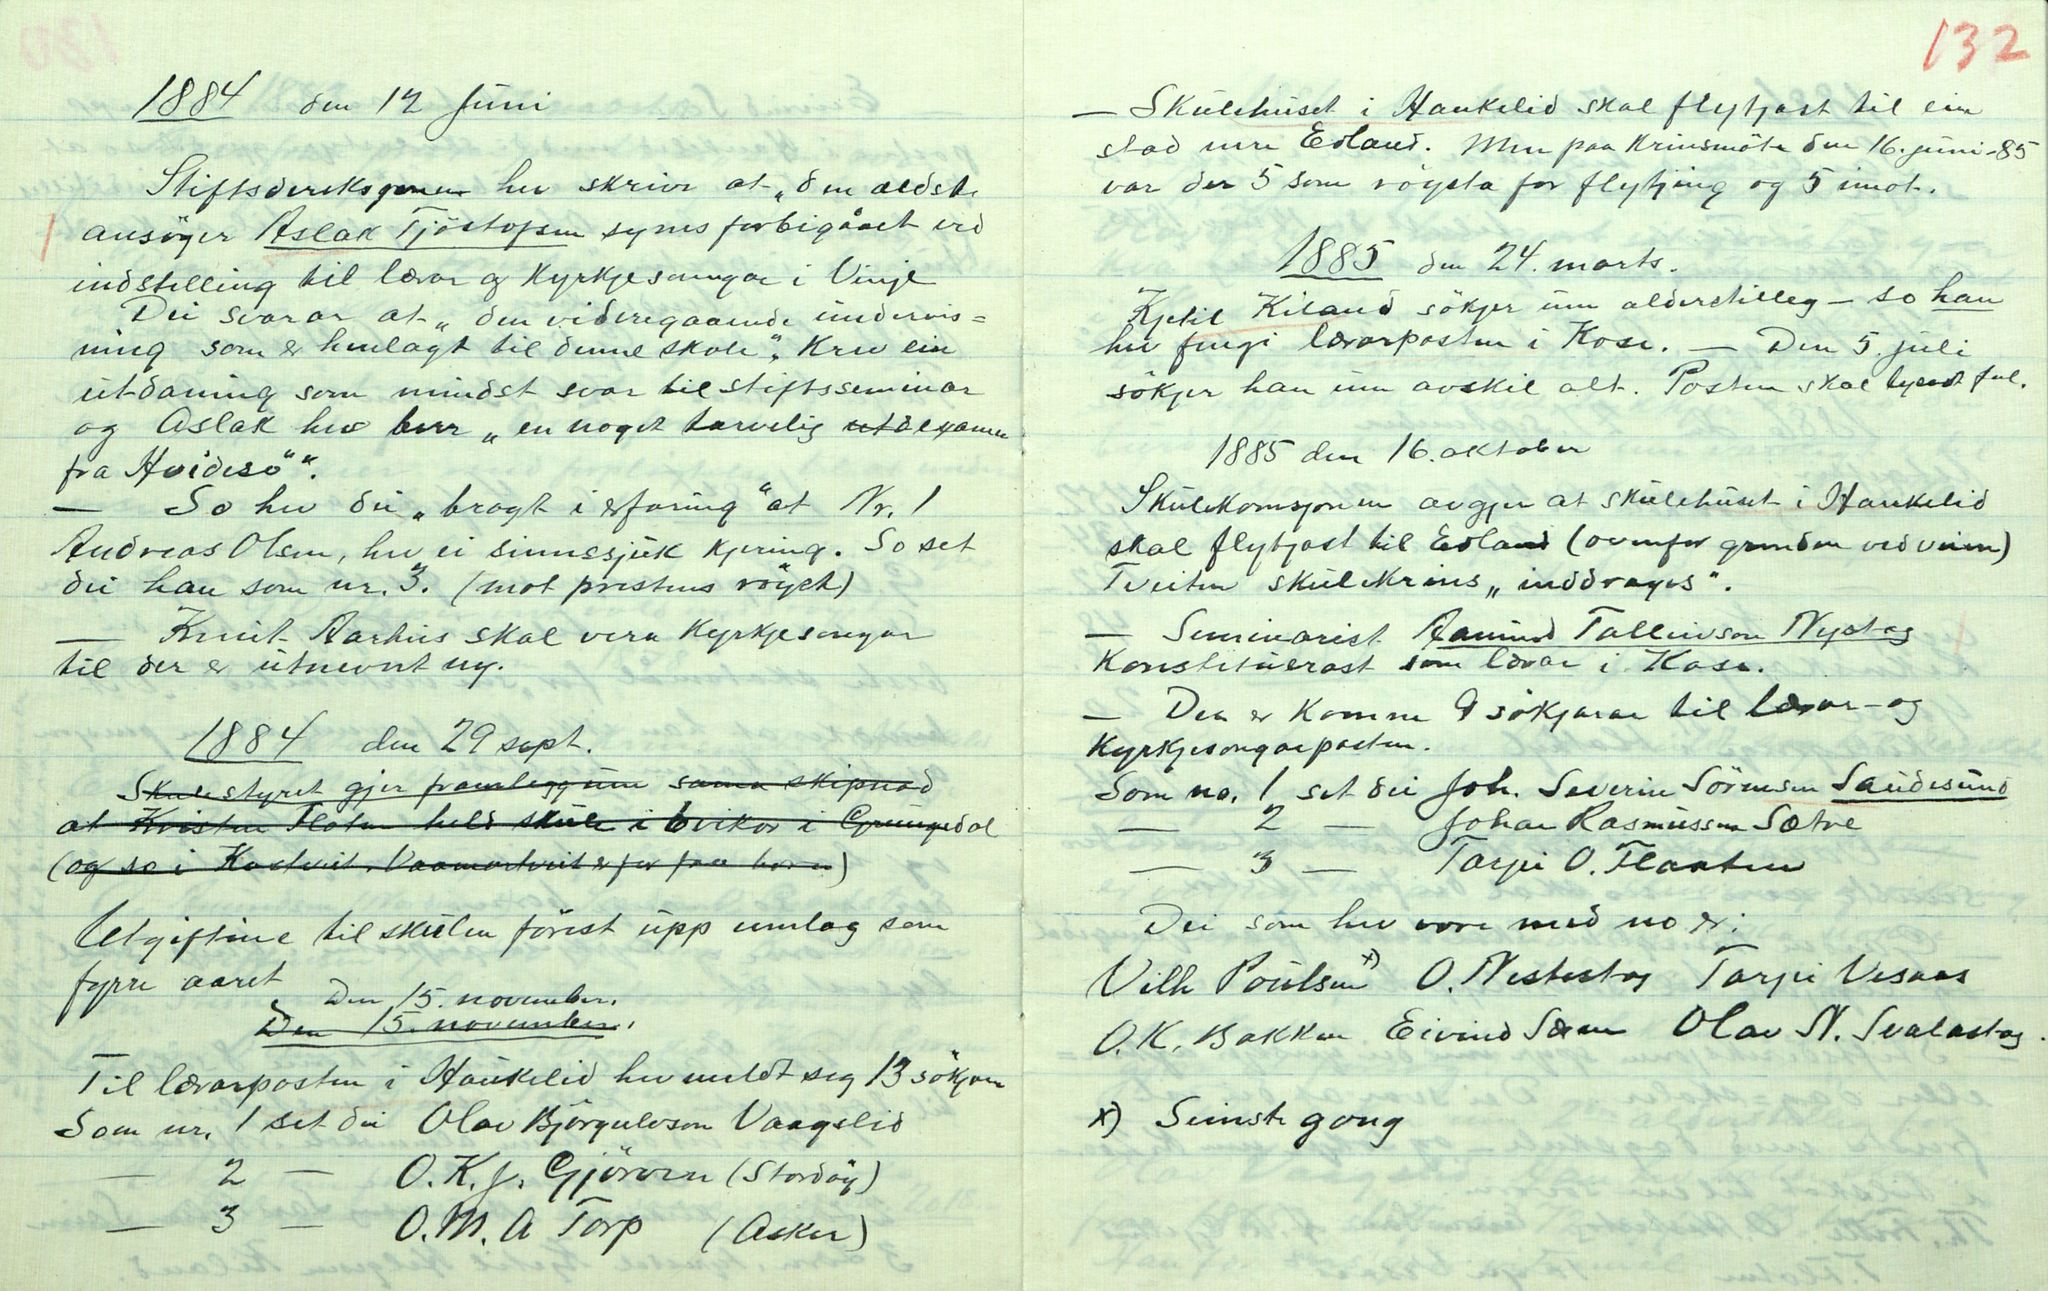 1884 den 12 Juni
Stiftsdireksjonen hev skrive at „den ældste
ansöger Aslak Tjöstofsen synes forbigåaet ved
indstilling til lærar og kyrkjesongar i Vinje
Dei svarar at „den videregaaende undervis=
ning som er henlagt til denne skole“, krev ein
utdaning som mindst svar til stiftsseminar
og Aslak hev berr „en noget tarvelig examen
fra Hvidesö“.
— So hev dei „bragt i erfaring“ at Nr. 1
Andreas Olsen, hev ei sinnssjuk kjering. So set
dei han som nr. 3. (mot prestens röyst)
— Knut Aarhus skal vera kyrkjesongar
til der er utnevnt ny.
1884 den 29 sept.
Skulestyret gjer framlegg um sama skipnad
at Kristen Floten held skule i 6 vikor i Grungedal
(og so i Kostveit, Vaamarteit er for faa born)
Utgiftine til skulen förest upp umlag som
fyrre aaret
Den 15. november.
Den 15. november.
Til lærarposten i Haukelid hev meldt seg 13 sökjarar
Som nr. 1 set dei Olav Björgulvson Vaagslid
— 2 — O. K. J. Gjörven (Stordöy)
— 3 — O. M. A Torp (Asker)
132
— Skulehuset i Haukelid skal flytjast til ein
stad nere Edland. Men paa krinsmöte den 16. juni -85
var der 5 som röysta for flytjing og 5 imot.
1885 den 24. marts.
Kjetil Kiland sökjer um alderstilleg — so han
hev fengi lærarposten i Kose. — Den 5. juli
sökjer han um avskil alt. Posten skal lysast ful.
1885 den 16. oktober
Skulekomsjonen avgjer at skulehuset i Haukelid
skal flytjast til Edland (ovenfor grinden ved veien)
Tveiten skulekrins „inddrages“.
— Seminarist Aamund Talleivson Nystog
konstituerast som lærar i Kose.
— Der er komne 9 sökjarar til lærar- og
kyrkjesongarposten.
Som no. 1 set dei Joh. Severin Sörensen Saudesund
— 2 — Johan Rasmussen Sætre
— 3 — Tarjei O. Flaaten
Dei som hev vore med no er:
Vilh Poulsen x) O. Nestestog Tarjei Vesaas
O. K. Bakken Eivind Sæm Olav N. Svalastog.
x) Seinste gong